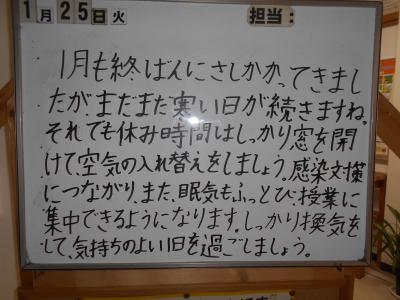 1月25日火 担当:
1月も終ばんにさしかかってきまし
たが、まだまだ寒い日が続きますね。
それでも休み時間はしっかり窓を開
けて、空気の入れ替えをしましょう。感染対策
につながり、また、眠気もふっとび授業に
集中できるようになります。しっかり換気を
して、気持ちのよい1日を過ごしましょう。